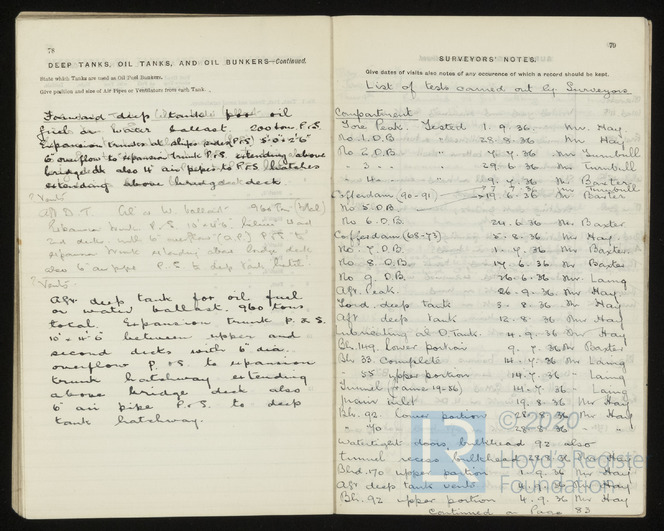 78
DEEP TANKS, OIL TANKS, AND OIL BUNKERS—Continued.
State which Tanks are used as Oil Fuel Bunkers.
Give position and size of Air Pipes or Ventilators from each Tank.
Forward deep tank for oil
fuel or water ballast. 200 tons P.&S.
Expansion trunks at ships sides P&S 5'0"x2'6"
6" overflow to expansion trunk P.&S. extending above
bridge dk also 4" air pipes to P&S hatches
extending above bridge deck.
? Vents
Aft D.T. Oil or W. ballast 960 Tns (total)
2nd decks with 6" overflow P&S to
expansion trunk extending above bridge deck
also 6" air pipe P.S. to deep tank
? Vents.
Aft. deep tank for oil fuel
or water ballast. 960 tons
total. Expansion trunk P.&S.
10' x 4'0" between upper and
second decks with 6" dia.
overflow P.&S. to expansion
trunk hatchway extending
above bridge deck also
6" air pipe P.&S. to deep
tank hatchway.
79
SURVEYORS' NOTES.
Give dates of visits also notes of any occurence of which a record should be kept.
List of tests carried out by Surveyors
Compartment
Fore Peak. Tested 1. 9. 36. Mr. Hay.
No 1. D.B. " 28.8.36 Mr Hay
No 2. D.B. " 7.36 Mr Turnbull
" 3 " " 29.6.36 Mr Turnbull
" 4 " " 9.7.36 Mr Baxter
Mr Turnbull
Cofferdam (90-91) 19.6.36 Mr Baxter
No 5. D.B.
No 6. D.B. 24.6.36 Mr. Baxter
Cofferdam (68-73) 5.8.36 Mr Hay.
No. 7. D.B. 1.7.36 Mr Baxter
No 8. D.B. 17.6.36 Mr Baxter
No 9. D.B. 26.6.36 Mr. Laing
Aft. Peak. 26.9.36. Mr Hay
Ford deep tank 5.8.36 Mr Hay
Aft deep tank 12.8.36 Mr Hay
4.9.36 Mr Hay
lower portion 9.7.36 Mr Baxter
Bh. 33. Complete 14.7.36 Mr Laing
" 35 upper portion 14.7.36 " Laing
Tunnel (Frame 19-36) 14.7.36 - Laing
Main inlet 19.8.36 Mr Hay
Bh. 92 lower portion 28.8.36 Mr Hay
28.8.36 " "
Watertight doors, bulkhead 92 also
tunnel recess bulkhead 28.8.36 Mr Hay
170 upper portion 1.9.36 Mr Hay
Aft deep tank vents 4.9.36 Mr Hay
Bh. 92 upper portion 4.9.36 Mr Hay
Continued on Page 83
© 2020
LR
Lloyd's Register
Foundation